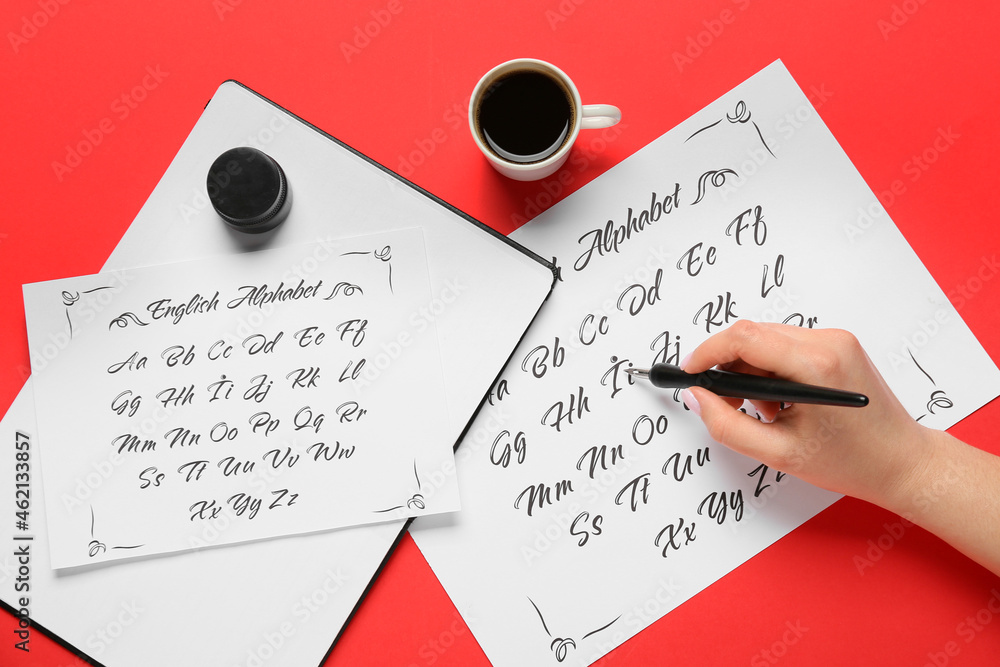 English Alphabet
Aa Bb Cc Dd Ee Ff
Gg Hh İi Jj Kk Ll
Mm Nn Oo Pp Qq Rr
Ss Tt Uu Vv Ww
Xx Yy Zz
Alphabet
Bb Cc Dd Ee Ff
Gg Hh İi Jj Kk Ll
Mm Nn Oo
Ss Tt Uu
Xx Yy
Adobe Stock | #462133857